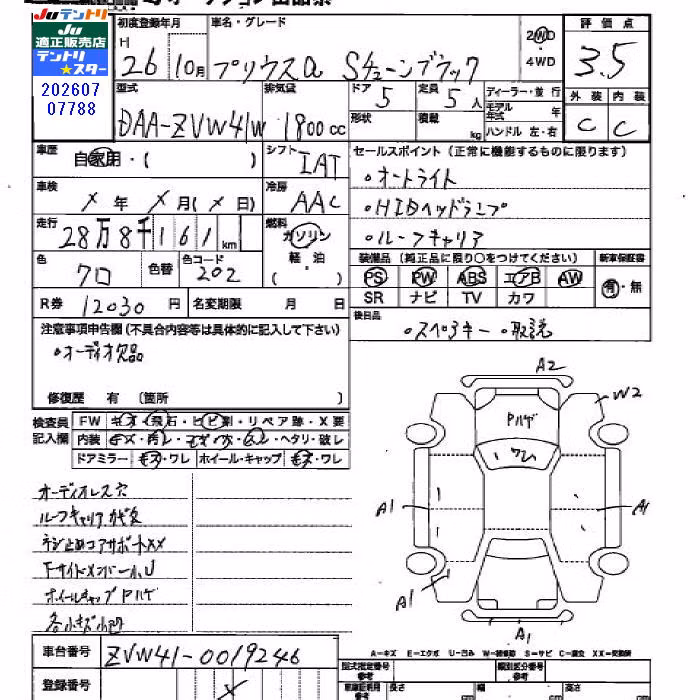 Juテントリ
Ju
適正販売店
テントリ
★スター
202607
07788
初度登録年月
H 26 10月
車名・グレード
プリウスα Sチューンブラック
2WD
・
4WD
評価点
3.5
型式
DAA-ZVW41W
排気量
1800cc
ドア 5
定員 5人
形状
積載 kg
ディーラー・並行
モデル年式 年
ハンドル 左・右
外装 内装
C C
車歴
自家用・( )
シフト
IAT
セールスポイント(正常に機能するものに限ります)
・オートライト
・HIDヘッドランプ
・ルーフキャリア
車検
X年X月(X日)
冷房
AAC
走行
28万8千161km
燃料
ガソリン
軽・油
( )
色
クロ
色替
色コード
202
装備品(純正品に限り○をつけてください)
PS PW ABS エアB AW
SR ナビ TV カワ
新車保証書
有・無
R券 12030円
名変期限 月 日
後日品
・スペアキー ・取説
注意事項申告欄(不具合内容等は具体的に記入して下さい)
・オーディオ欠品
修復歴 有(箇所 )
検査員
記入欄
FW キズ・飛石・ヒビ割・リペア跡・X要
内装 キズ・汚レ・コゲ・穴・スレ・ヘタリ・破レ
ドアミラー キズ・ワレ ホイール・キャップ キズ・ワレ
オーディオレス穴
ルーフキャリア
コアサポートXX
ホイールキャップPハゲ
各小キズ小凹
A2
W2
Pハゲ
ワレ
A1
A1
A1
A1
A-キズ E-エクボ U-凹み W-補修跡 S-サビ C-腐食 XX-交換済
車台番号
ZVW41-0019246
登録番号
X
型式指定番号
類別区分番号
長さ
幅
高さ